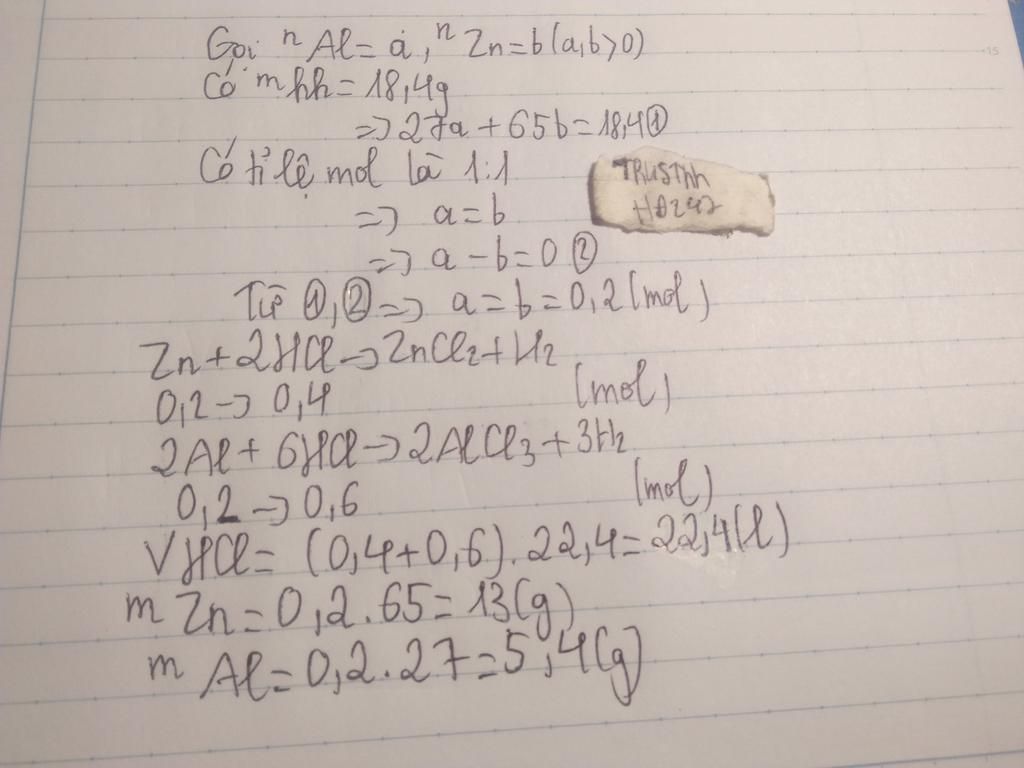 Gọi n Al = a, n Zn = b (a,b>0)
Có m hh = 18,4g
=> 27a + 65b = 18,4 ①
Có tỉ lệ mol là 1:1
=> a = b
=> a - b = 0 ②
Từ ①, ② => a = b = 0,2 (mol)
Zn + 2HCl -> ZnCl2 + H2
0,2 -> 0,4 (mol)
2Al + 6HCl -> 2AlCl3 + 3H2
0,2 -> 0,6 (mol)
V HCl = (0,4+0,6).22,4 = 22,4(l)
m Zn = 0,2.65 = 13(g)
m Al = 0,2.27 = 5,4(g)
TRUSThh
15